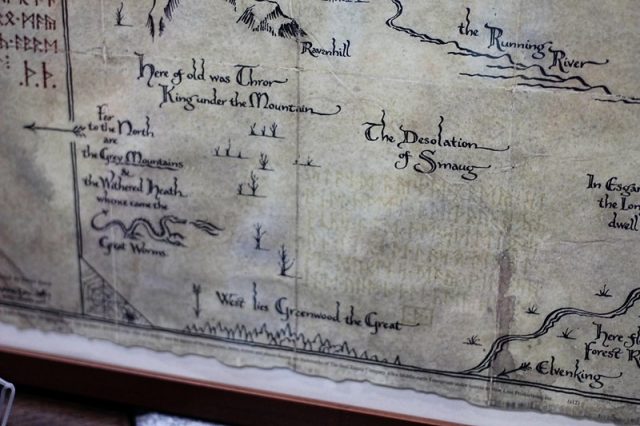 Ravenhill
the Running River
Here of old was Thror
King under the Mountain
Far
to the North
are
the Grey Mountains
&
the Withered Heath
whence came the
Great Worms
The Desolation
of Smaug
In Esgar
the Lon
dwell
West lies Greenwood the Great
Here fl
Forest R
Elvenking